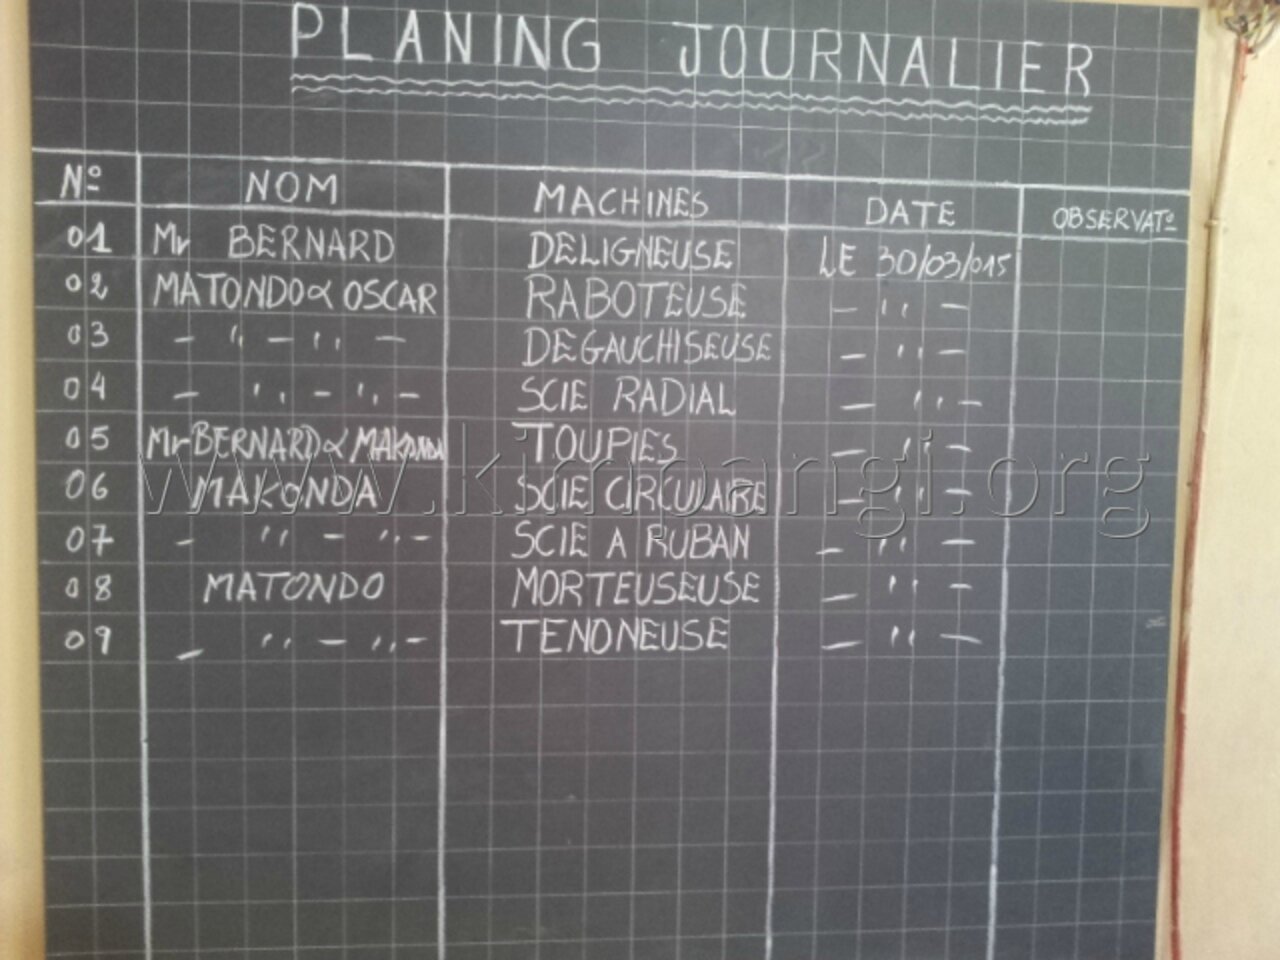 PLANING JOURNALIER
Nº NOM MACHINES DATE OBSERVATº
01 Mr BERNARD DELIGNEUSE LE 30/03/015
02 MATONDO & OSCAR RABOTEUSE — '' —
03 — '' — '' — DEGAUCHISEUSE — '' —
04 — '' — '' — SCIE RADIAL — '' —
05 Mr BERNARD & MAKONDA TOUPIES — '' —
06 MAKONDA SCIE CIRCULAIRE — '' —
07 — '' — '' — SCIE A RUBAN — '' —
08 MATONDO MORTEUSEUSE — '' —
09 — '' — '' — TENONEUSE — '' —
www.kimpangi.org